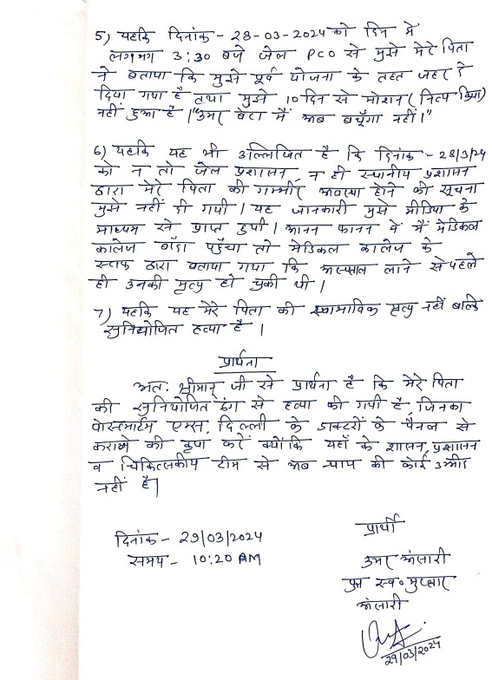 5) यहकि दिनांक - 28-03-2024 को दिन में
लगभग 3:30 बजे जेल PCO से मुझे मेरे पिता
ने बताया कि मुझे पूर्व योजना के तहत जहर दे
दिया गया है तथा मुझे 10 दिन से मोशन (नित्य क्रिया)
नहीं हुआ है। "उमर बेटा मैं अब बचूँगा नहीं।"
6) यहकि यह भी उल्लिखित है कि दिनांक - 28/3/24
को न तो जेल प्रशासन, न ही स्थानीय प्रशासन
द्वारा मेरे पिता की गम्भीर अवस्था होने की सूचना
मुझे नहीं दी गयी। यह जानकारी मुझे मीडिया के
माध्यम से प्राप्त हुयी। आनन फानन में मैं मेडिकल
कालेज बाँदा पहुँचा तो मेडिकल कालेज के
स्टाफ द्वारा बताया गया कि अस्पताल लाने से पहले
ही उनकी मृत्यु हो चुकी थी।
7) यहकि यह मेरे पिता की स्वाभाविक मृत्यु नहीं बल्कि
सुनियोजित हत्या है।
प्रार्थना
अतः श्रीमान् जी से प्रार्थना है कि मेरे पिता
की सुनियोजित ढंग से हत्या की गयी है, जिनका
पोस्टमार्टम एम्स, दिल्ली के डाक्टरों के पैनल से
कराने की कृपा करें क्योंकि यहाँ के शासन, प्रशासन
व चिकित्सकीय टीम से अब न्याय की कोई उम्मीद
नहीं है।
दिनांक - 29/03/2024
समय - 10:20 AM
प्रार्थी
उमर अंसारी
पुत्र स्व० मुख्तार
अंसारी
29/03/2024